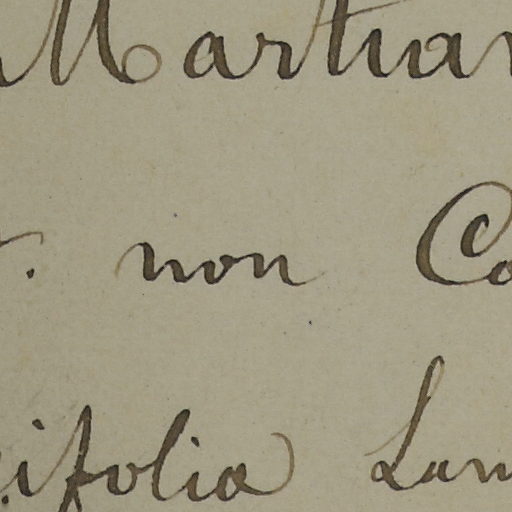 Martian
. non Co
ifolia Lam